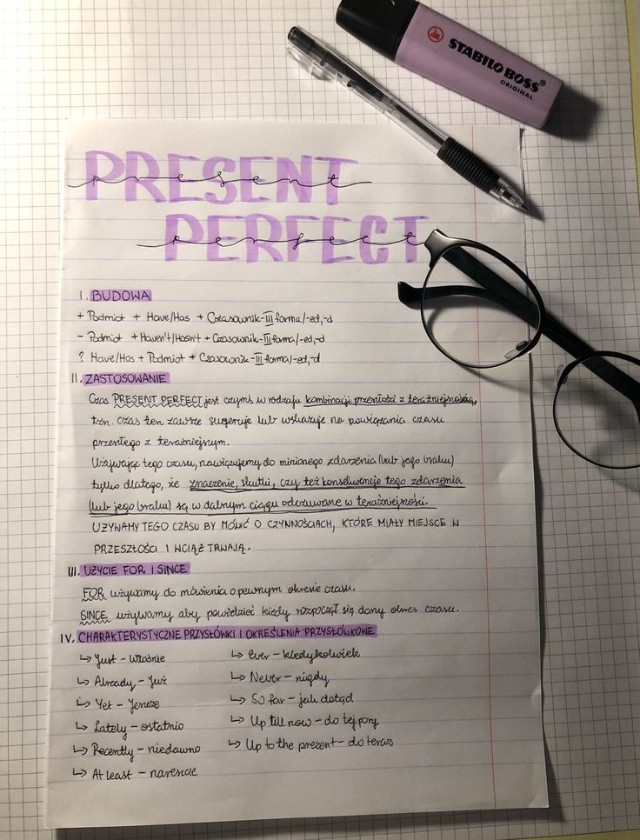 STABILO BOSS®
ORIGINAL
PRESENT
present
PERFECT
perfect
I. BUDOWA
+ Podmiot + Have/Has + Czasownik-III forma/-ed,-d
- Podmiot + Haven't/Hasn't + Czasownik-III forma/-ed,-d
? Have/Has + Podmiot + Czasownik-III forma/-ed,-d
II. ZASTOSOWANIE
Czas PRESENT PERFECT jest czymś w rodzaju kombinacji przeszłości z teraźniejszością,
tzn. czas ten zawsze sugeruje lub wskazuje na powiązania czasu
przeszłego z teraźniejszym.
Używając tego czasu, nawiązujemy do minionego zdarzenia (lub jego braku)
tylko dlatego, że znaczenie, skutki, czy też konsekwencje tego zdarzenia
(lub jego braku) są w dalszym ciągu odczuwane w teraźniejszości.
UŻYWAMY TEGO CZASU BY MÓWIĆ O CZYNNOŚCIACH, KTÓRE MIAŁY MIEJSCE W
PRZESZŁOŚCI I WCIĄŻ TRWAJĄ.
III. UŻYCIE FOR I SINCE
FOR używamy do mówienia o pewnym okresie czasu.
SINCE używamy aby powiedzieć kiedy rozpoczął się dany okres czasu.
IV. CHARAKTERYSTYCZNE PRZYSŁÓWKI I OKREŚLENIA PRZYSŁÓWKOWE
↳ Just - właśnie
↳ Already - już
↳ Yet - jeszcze
↳ Lately - ostatnio
↳ Recently - niedawno
↳ At least - nareszcie
↳ Ever - kiedykolwiek
↳ Never - nigdy
↳ So far - jak dotąd
↳ Up till now - do tej pory
↳ Up to the present - do teraz